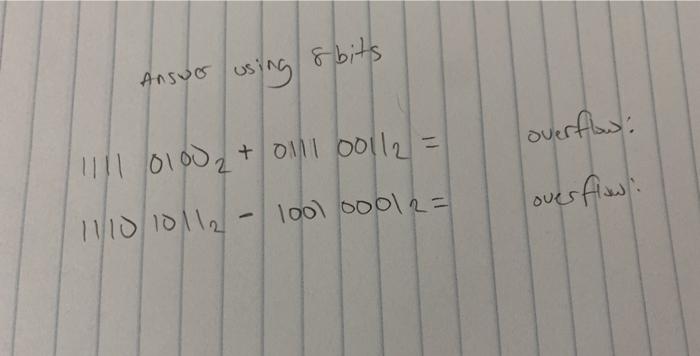 Answer using 8 bits
1111 0100₂ + 0111 0011₂ = overflow:
1110 1011₂ - 1001 0001₂ = overflow: